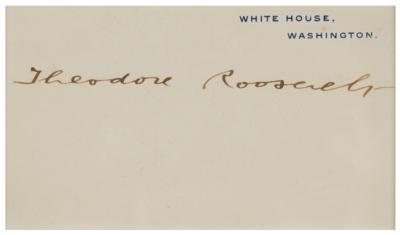 WHITE HOUSE,
WASHINGTON.
Theodore Roosevelt